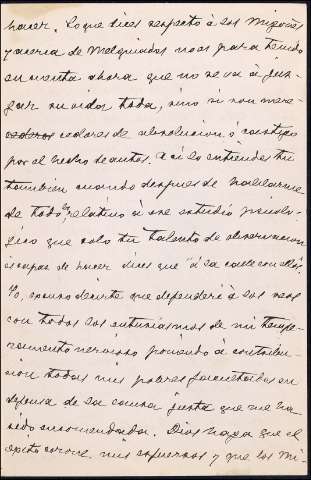 hacer. Lo que dices respecto á los Migueis
y acerca de Melquiades no es para tenido
en cuenta ahora que no se va á juz-
gar su vida toda, sino si son mere-
cedores de absolucion ó castigo
por el hecho de autos. Asi lo entiendes tu
tambien cuando despues de hablarme
de todo lo relativo á ese estudio psicolo-
gico que solo tu talento de observacion
es capaz de hacer dices que "á la calle con ellos".
Yo, escuso decirte que defenderé á los reos
con todos los entusiasmos de mi tempe-
ramento nervioso poniendo á contribu-
cion todas mis pobres facultades en
defensa de la causa justa que me ha
sido encomendada. Dios haga que el
exito corone mis esfuerzos y que los Mi-